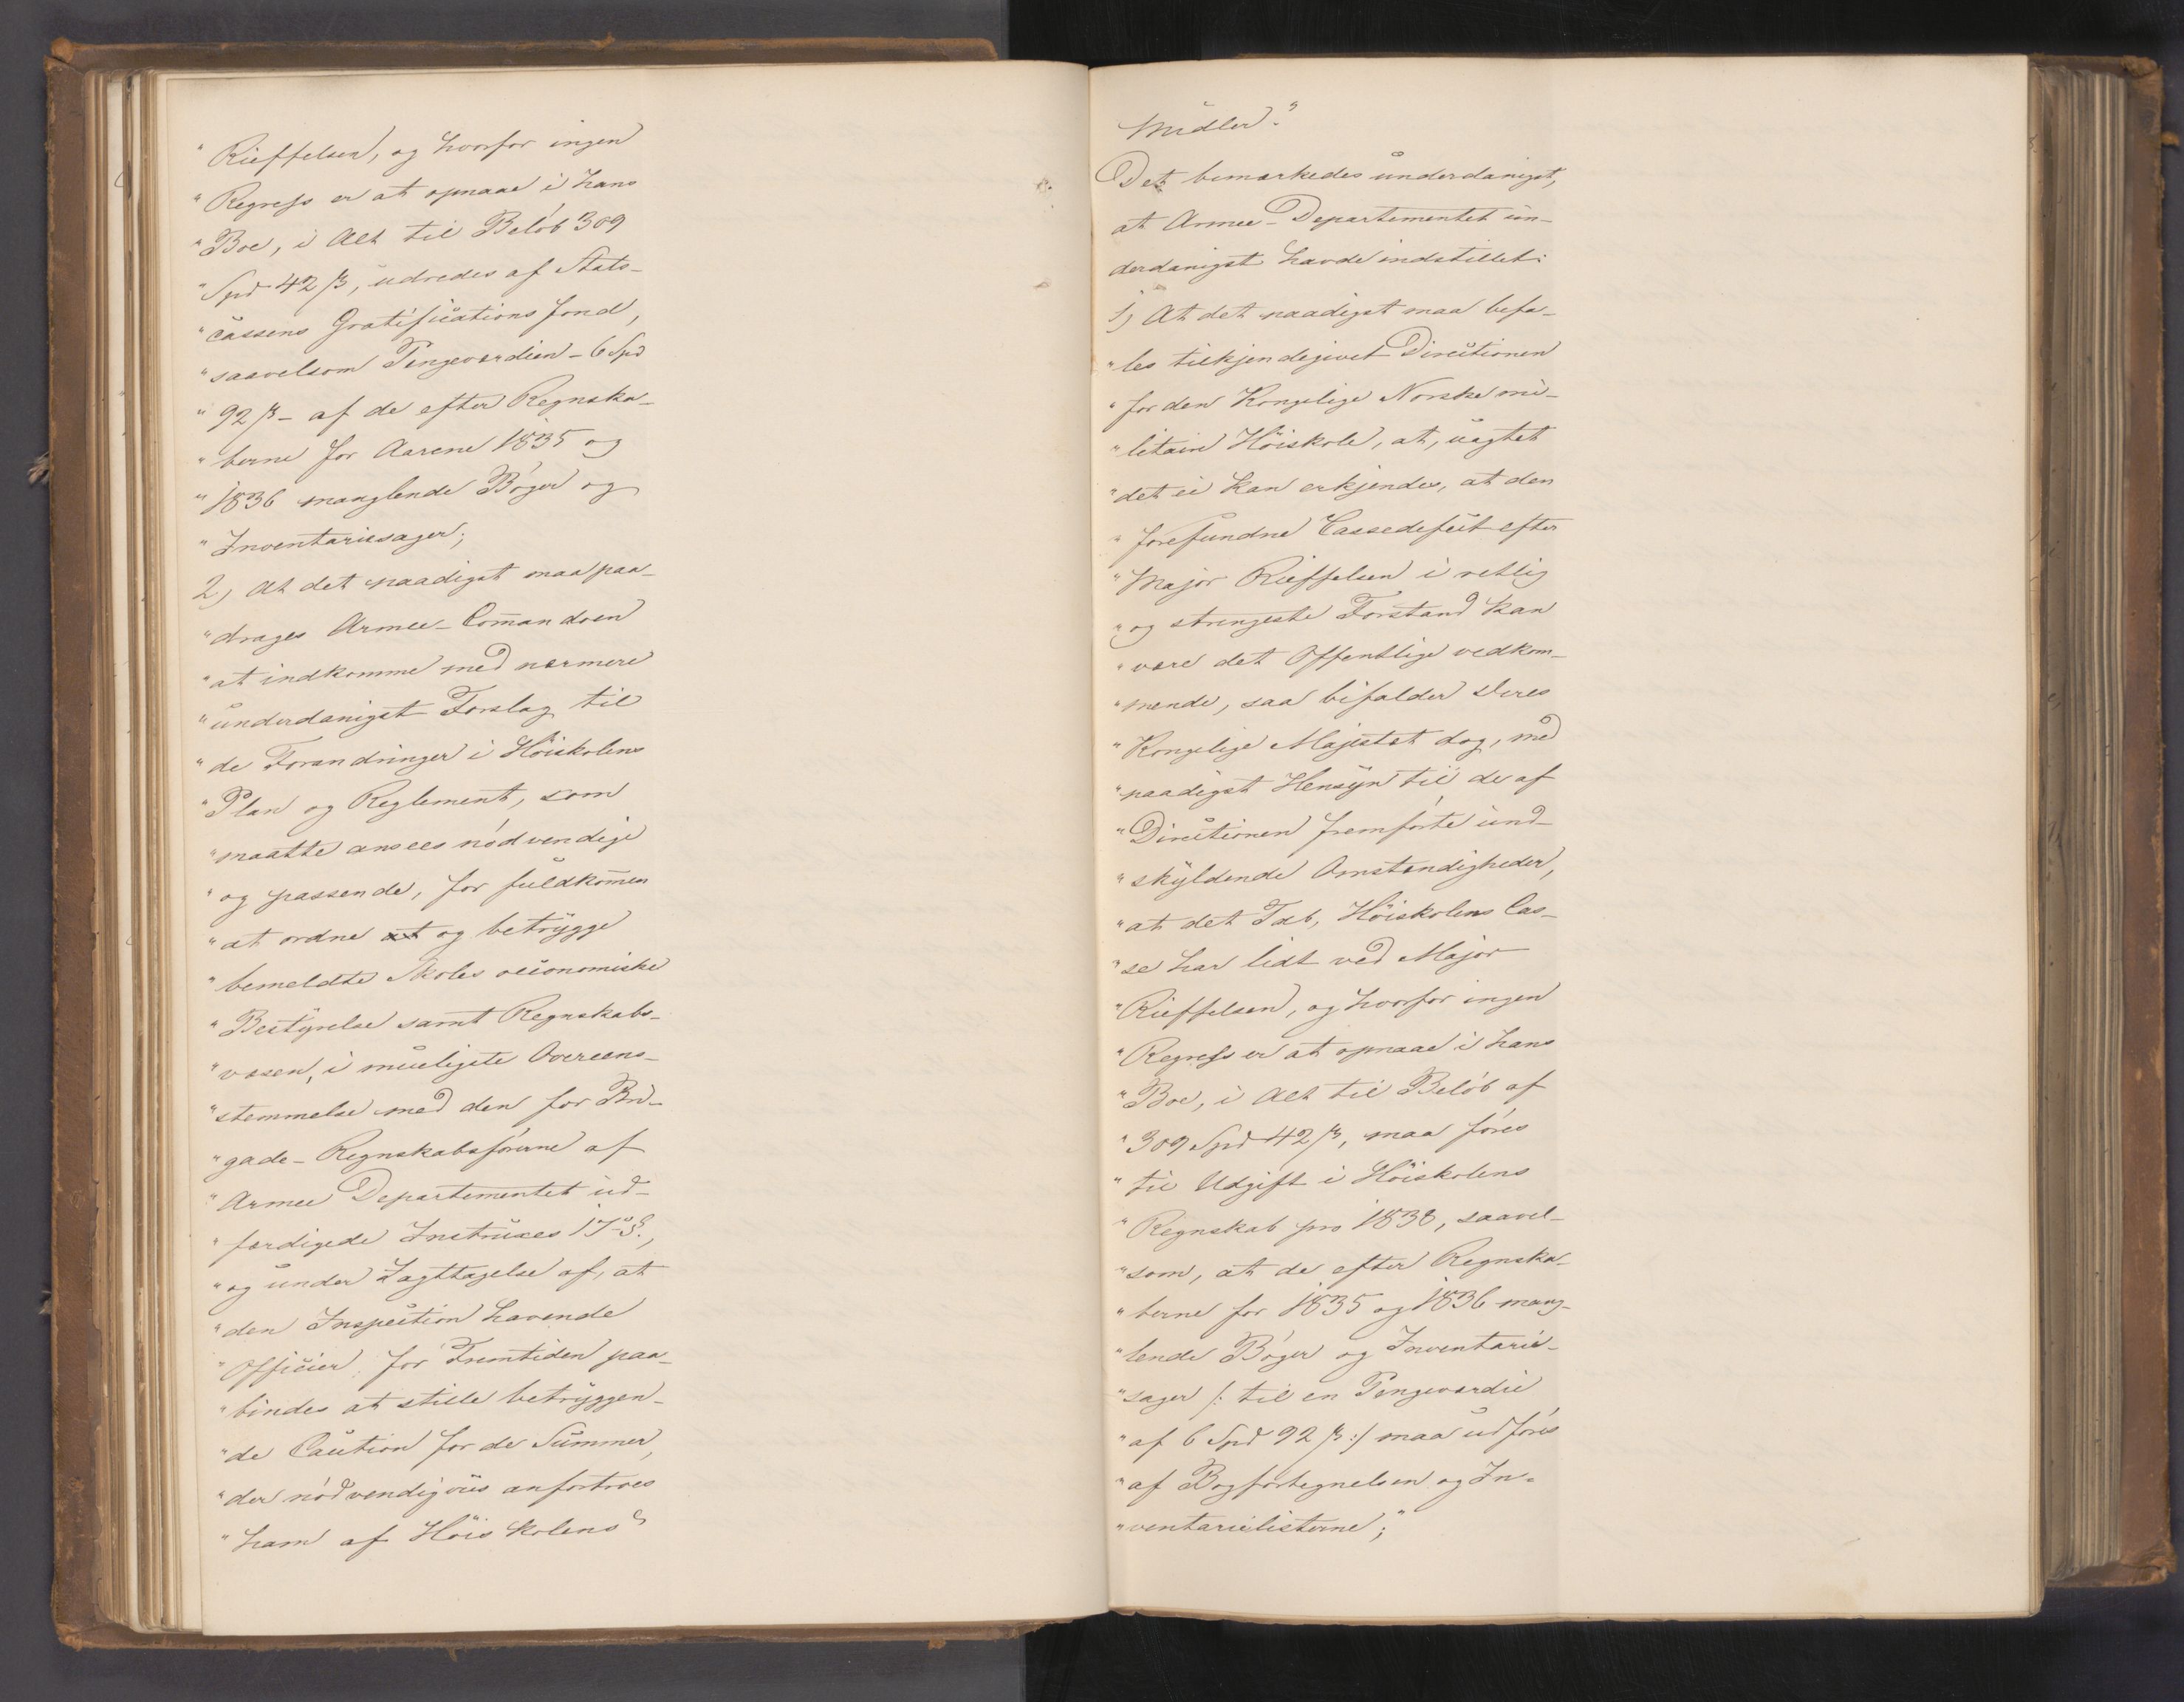 "Rieffelsen, og hvorfor ingen
"Regress er at opnaae i hans
"Boe, i Alt til Beløb 309
"Spd 42 ß, udredes af Stats-
"cassens Gratificationsfond,
"saavelsom Pengeværdien - 6 Spd
"92 ß - af de efter Regnska-
"berne for Aarene 1835 og
"1836 manglende Bøger og
"Inventariesager;
2) At det naadigst maa paa-
"drages Armee-Com̄andoen
"at indkomme med nærmere
"underdanigst Forslag til
"de Forandringer i Høiskolens
"Plan og Reglement, som
"maatte ansees nødvendige
"og passende, for fuldkom̄en
"at ordne at og betrygge
"bemeldte Skoles oeconomiske
"Bestyrelse samt Regnskabs-
"væsen, i mueligste Overeens-
"stemmelse med den for Bri-
"gade-Regnskabsførerne af
"Armee Departementet ud-
"færdigede Instruxes 17de §.,
"og under Iagttagelse af, at
"den Inspection havende
"Officier for Fremtiden paa-
"bindes at stille betryggen-
"de Caution for de Summer,
"der nødvendigviis anfortroes
"ham af Høiskolens"
Midler."
Det bemærkedes underdanigst,
at Armee-Departementet un-
derdanigst havde indstillet:
1) At det naadigst maa befa-
"les tilkjendegivet Directionen
"for den Kongelige Norske mi-
"litaire Høiskole, at, uagtet
"det ei kan erkjendes, at den
"forefundne Cassedefect efter
"Major Rieffelsen i retlig
"og strengeste Forstand kan
"være det Offentlige vedkom-
"mende, saa bifalder Deres
"Kongelige Majestæt dog, med
"naadigst Hensyn til de af
"Directionen fremførte und-
"skyldende Omstændigheder,
"at det Tab, Høiskolens Cas-
"se har lidt ved Major
"Rieffelsen, og hvorfor ingen
"Regress er at opnaae i hans
"Boe, i Alt til Beløb af
"309 Spd 42 ß, maa føres
"til Udgift i Høiskolens
"Regnskab pro 1838, saavel-
"som, at de efter Regnska-
"berne for 1835 og 1836 mang-
"lende Bøger og Inventarie-
"sager /: til en Pengeværdie
"af 6 Spd 92 ß :/ maa udføres
"af Bogfortegnelsen og In-
"ventarielisterne;"